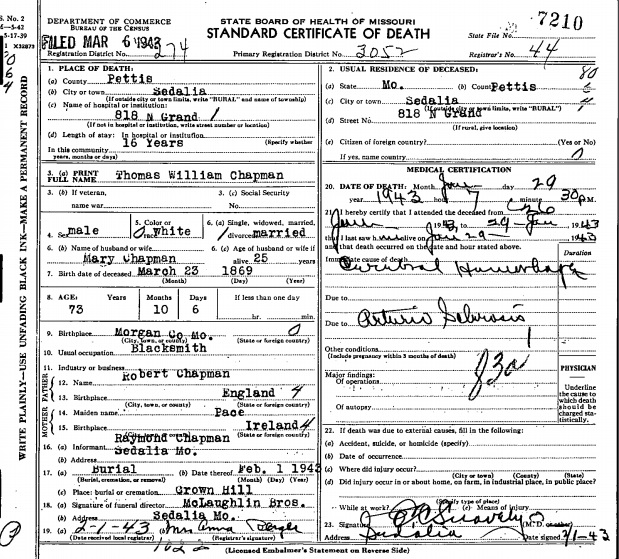 S. No. 2
5-17-39
X32873
DEPARTMENT OF COMMERCE
BUREAU OF THE CENSUS
STATE BOARD OF HEALTH OF MISSOURI
STANDARD CERTIFICATE OF DEATH
State File No. 7210
FILED MAR 6 1943
Registration District No. 274
Primary Registration District No. 3052
Registrar's No. 44
WRITE PLAINLY—USE UNFADING BLACK INK—MAKE A PERMANENT RECORD
1. PLACE OF DEATH:
(a) County Pettis
(b) City or town Sedalia
(If outside city or town limits, write "RURAL" and name of township)
(c) Name of hospital or institution:
818 N Grand
(If not in hospital or institution, write street number or location)
(d) Length of stay: In hospital or institution
(Specify whether
In this community 16 Years
years, months or days)
2. USUAL RESIDENCE OF DECEASED:
(a) State Mo. (b) County Pettis
(c) City or town Sedalia
(If outside city or town limits, write "RURAL")
(d) Street No. 818 N Grand
(If rural, give location)
(e) Citizen of foreign country? (Yes or No)
If yes, name country
3. (a) PRINT FULL NAME Thomas William Chapman
3. (b) If veteran, name war
3. (c) Social Security No.
4. Sex male
5. Color or race White
6. (a) Single, widowed, married, divorced married
6. (b) Name of husband or wife Mary Chapman
6. (c) Age of husband or wife if alive 25 years
7. Birth date of deceased March 23 1869
(Month) (Day) (Year)
8. AGE: Years Months Days If less than one day
73 10 6 hr. min.
9. Birthplace Morgan Co Mo.
(City, town, or county) (State or foreign country)
10. Usual occupation Blacksmith
11. Industry or business
FATHER
12. Name Robert Chapman
13. Birthplace England 4
(City, town, or county) (State or foreign country)
MOTHER
14. Maiden name Pace
15. Birthplace Ireland 4
(City, town, or county) (State or foreign country)
16. (a) Informant Raymond Chapman
(b) Address Sedalia Mo.
17. (a) Burial (b) Date thereof Feb. 1 1943
(Burial, cremation, or removal) (Month) (Day) (Year)
(c) Place: burial or cremation Crown Hill
18. (a) Signature of funeral director McLaughlin Bros.
(b) Address Sedalia Mo.
19. (a) 2-1-43 (b) Mrs Anna
(Date received local registrar) (Registrar's signature)
MEDICAL CERTIFICATION
20. DATE OF DEATH: Month Jan day 29
year 1943 hour 7 minute 30 P.M.
21. I hereby certify that I attended the deceased from
Jan 26 1943, to 29 - Jan, 1943
that I last saw him alive on Jan 29 1943
and that death occurred on the date and hour stated above.
Immediate cause of death
Cerebral Hemorrhage
Due to
Due to Arturio Sclerosis
Other conditions
(Include pregnancy within 3 months of death)
Major findings:
Of operations
Of autopsy
83a
PHYSICIAN
Underline the cause to which death should be charged statistically.
22. If death was due to external causes, fill in the following:
(a) Accident, suicide, or homicide (specify)
(b) Date of occurrence
(c) Where did injury occur?
(City or town) (County) (State)
(d) Did injury occur in or about home, on farm, in industrial place, in public place?
(Specify type of place)
While at work? (e) Means of injury
23. Signature (M.D. or other)
Address Sedalia Date signed 2/1-43
(Licensed Embalmer's Statement on Reverse Side)